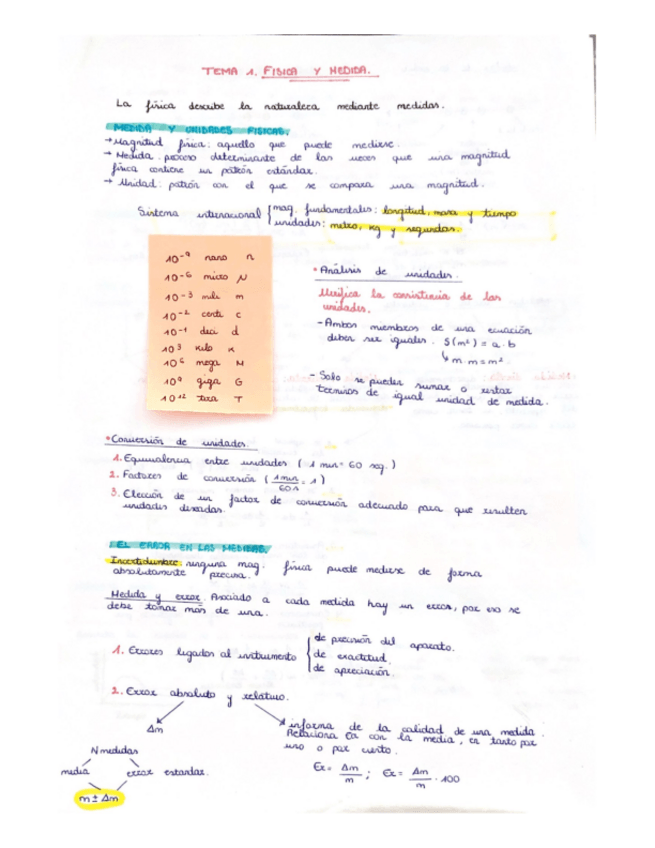 TEMA 1. FISICA Y MEDIDA.
La física describe la naturaleza mediante medidas.
MEDIDA Y UNIDADES FISICAS.
→ Magnitud física: aquello que puede medirse.
→ Medida: proceso determinante de las veces que una magnitud
física contiene un patrón estándar.
→ Unidad: patrón con el que se compara una magnitud.
Sistema internacional { mag. fundamentales: longitud, masa y tiempo
unidades: metro, kg y segundos.
10⁻⁹ nano n
10⁻⁶ micro μ
10⁻³ mili m
10⁻² centi c
10⁻¹ deci d
10³ kilo k
10⁶ mega M
10⁹ giga G
10¹² tera T
• Análisis de unidades.
Verifica la consistencia de las
unidades.
- Ambos miembros de una ecuación
deben ser iguales. S(m²) = a · b
↳ m · m = m²
- Solo se pueden sumar o restar
términos de igual unidad de medida.
• Conversión de unidades.
1. Equivalencia entre unidades ( 1 min = 60 seg. )
2. Factores de conversión ( 1 min / 60 s = 1 )
3. Elección de un factor de conversión adecuado para que resulten
unidades deseadas.
EL ERROR EN LAS MEDIDAS.
Incertidumbre: ninguna mag. física puede medirse de forma
absolutamente precisa.
Medida y error. Asociado a cada medida hay un error, por eso se
debe tomar más de una.
1. Errores ligados al instrumento { de precisión del aparato.
de exactitud.
de apreciación.
2. Error absoluto y relativo.
Δm
informa de la calidad de una medida.
Relaciona Ea con la media, en tanto por
uno o por ciento.
Er = Δm / m ; Er = Δm / m · 100
N medidas
media error estandar.
m ± Δm